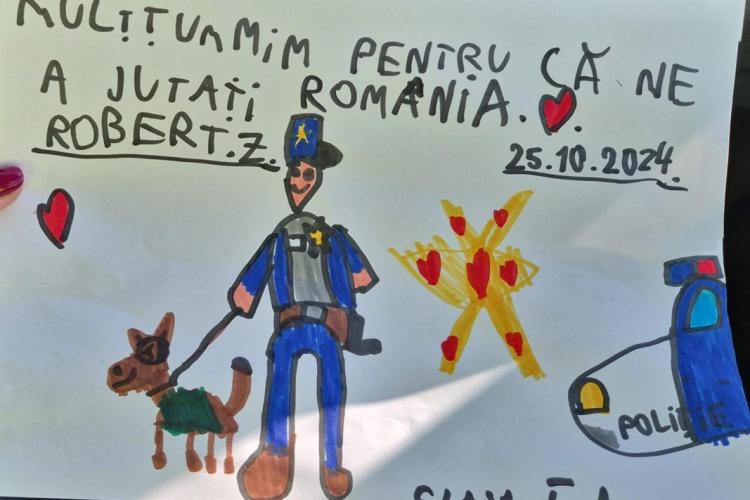 MULȚȚUMMIM PENTRU CĂ NE
A JUTAȚI ROMANIA.
ROBERT.Z.
25.10.2024.
POLIȚIE